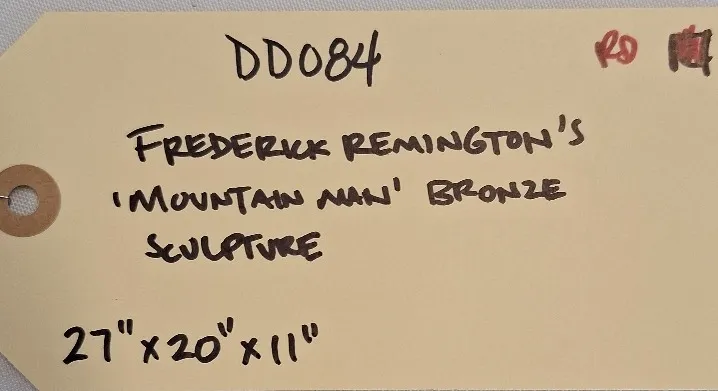 DD084 RD
FREDERICK REMINGTON'S
'MOUNTAIN MAN' BRONZE
SCULPTURE
27" x 20" x 11"